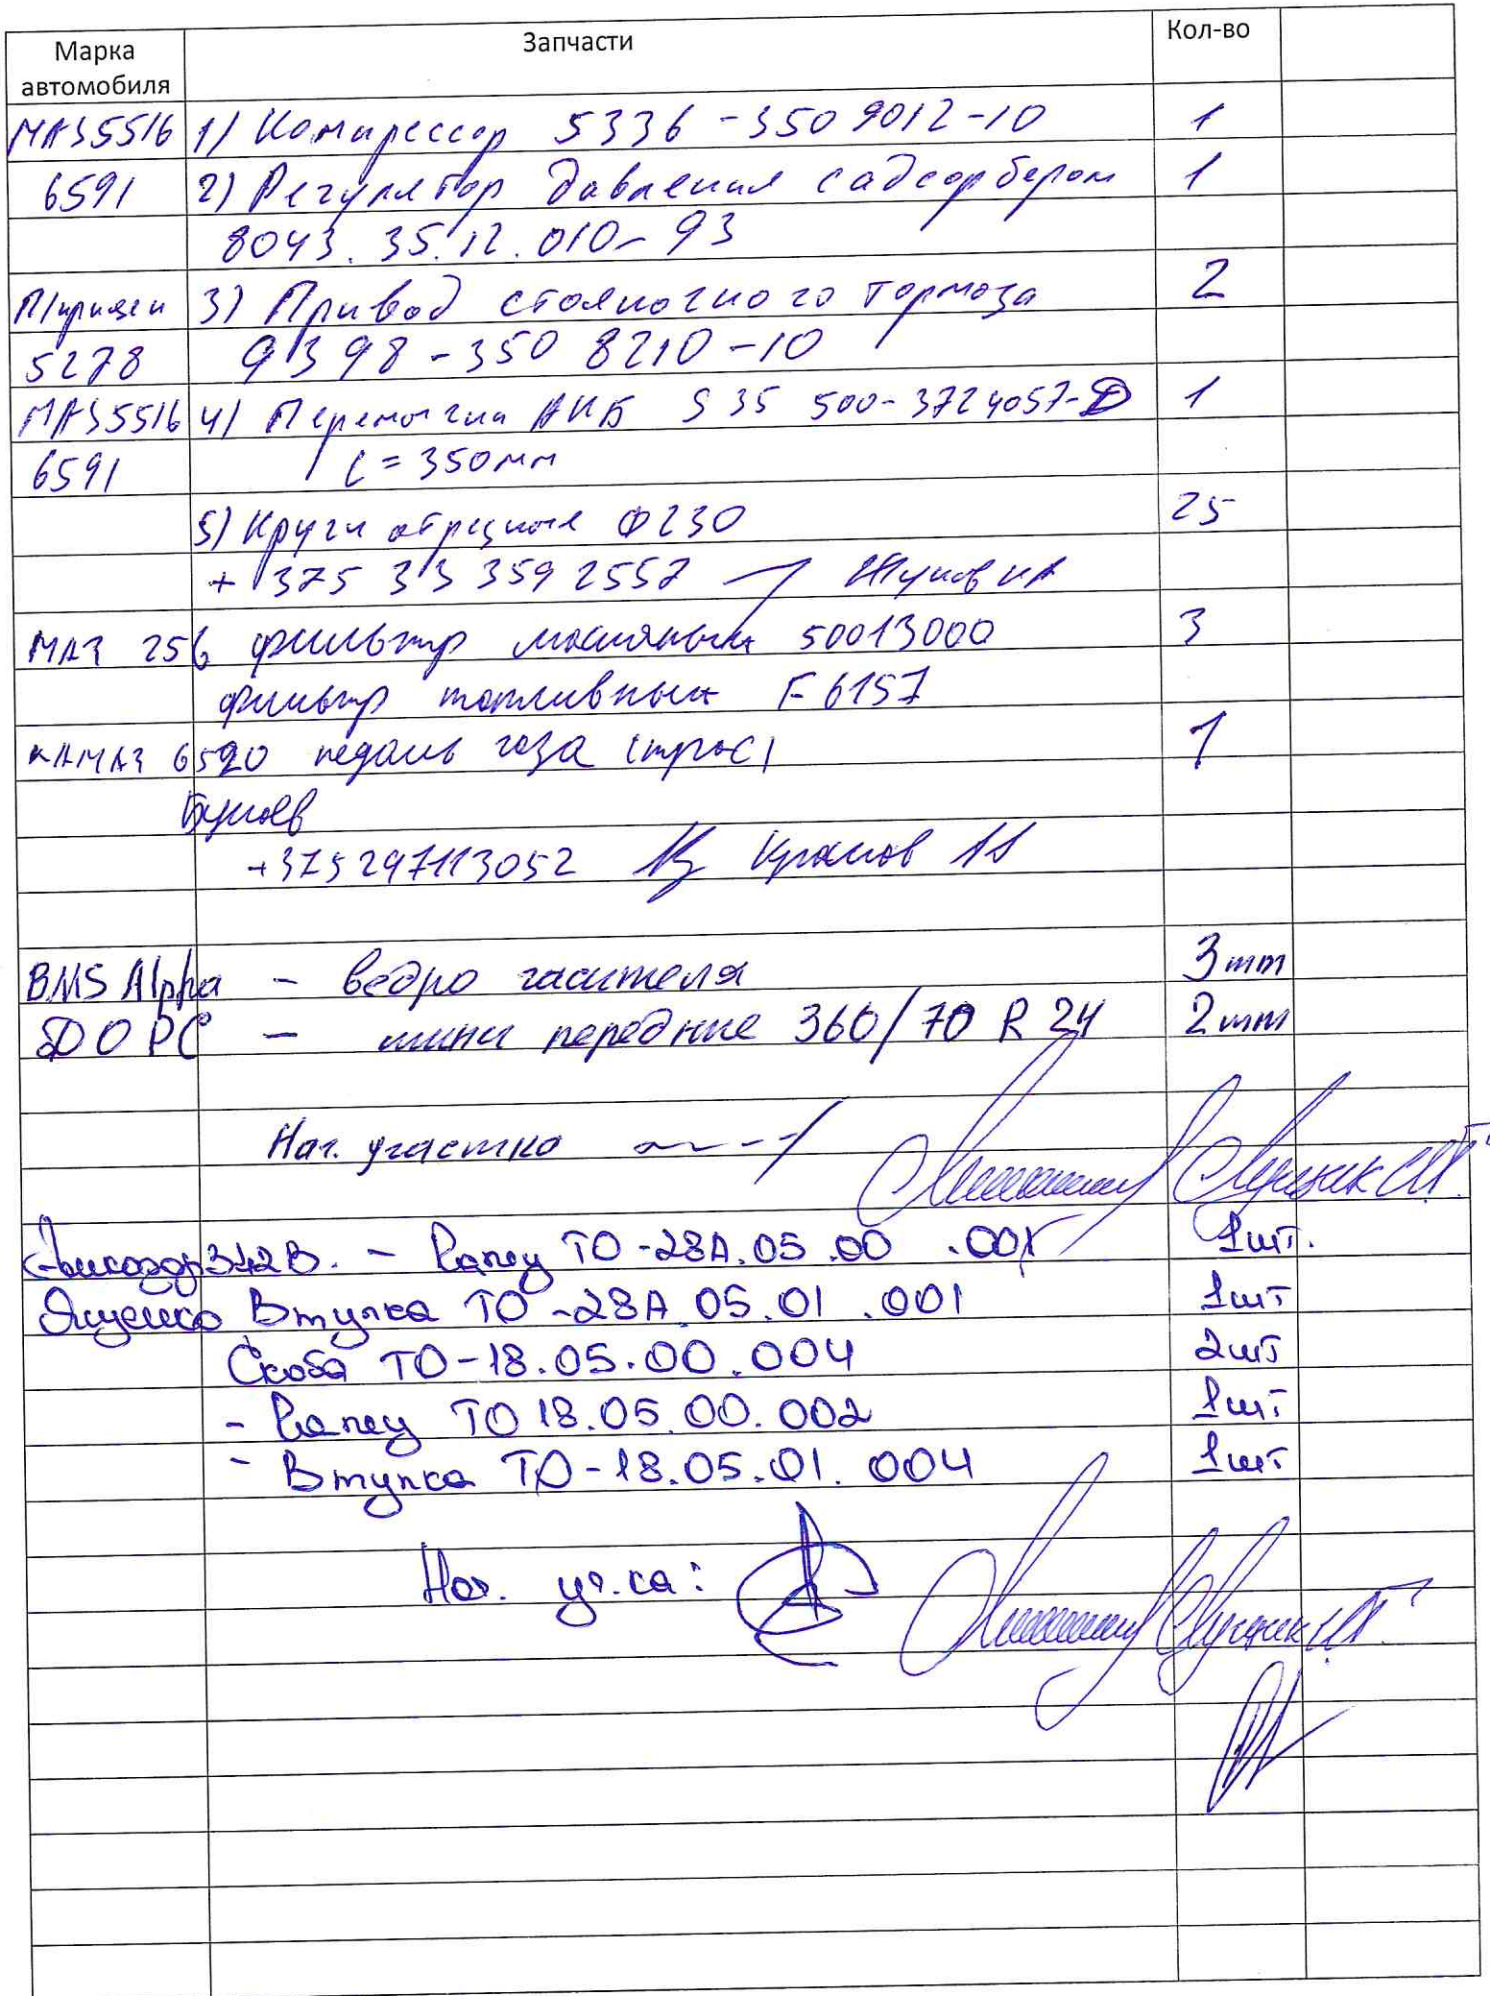 Марка автомобиля Запчасти Кол-во
МАЗ 5516 1) Компрессор 5336-3509012-10 1
6591 2) Регулятор давления с адсорбером 1
8043.35.12.010-93
П/прицеп 3) Привод стояночного тормоза 2
5278 9398-3508210-10
МАЗ 5516 4) Перемычки АКБ S 35 500-3724057-D 1
6591 L=350мм
5) Круги отрезные Ф230 25
+375 33 359 2557
МАЗ 256 фильтр масляный 50013000 3
фильтр топливный F6157
КАМАЗ 6520 педаль газа (трос) 1
+375297113052
BMS Alpha - ведро гасителя 3шт
- шины передние 360/70 R 24 2шт
Нач. участка
342В. - Палец ТО-28А.05.00.001 1шт.
Ященко Втулка ТО-28А.05.01.001 1шт
Скоба ТО-18.05.00.004 2шт
- Палец ТО 18.05.00.002 1шт
- Втулка ТО-18.05.01.004 1шт
Нач. уч.ка: